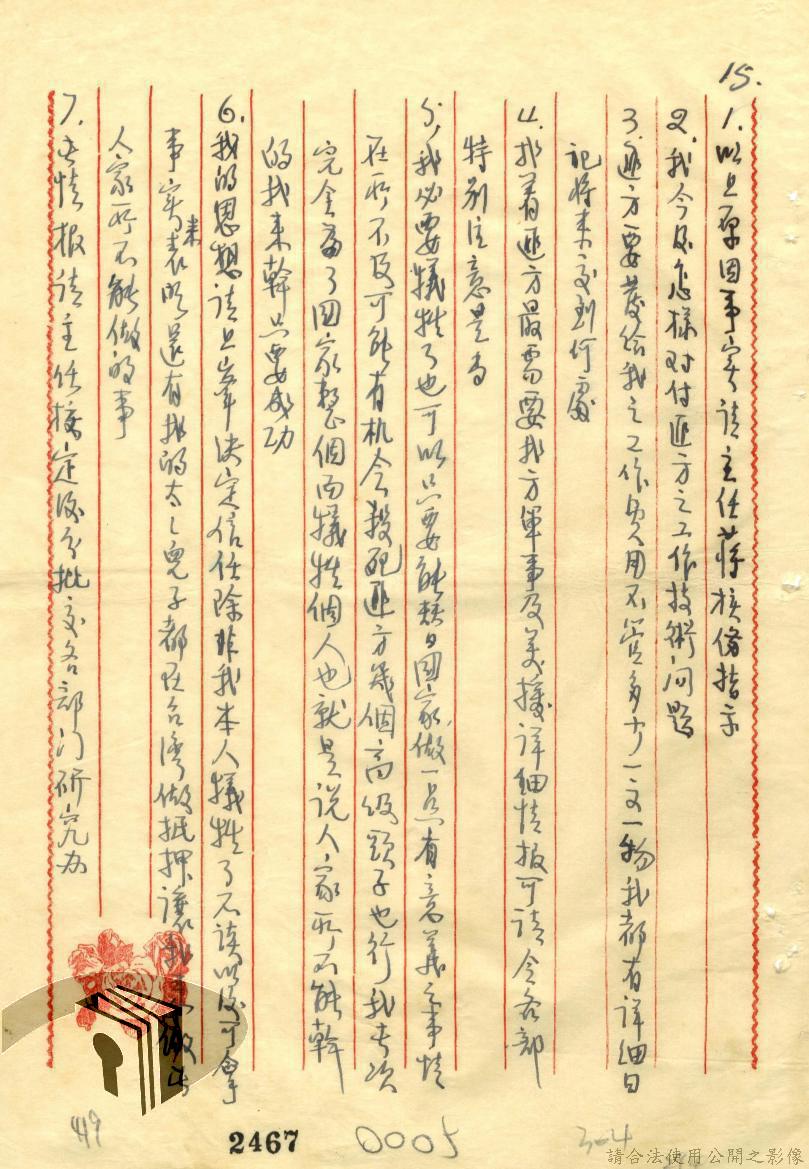 15.
1. 以上原因事实请主任蒋核備指示
2. 我今后怎樣对付匪方之工作技術问题
3. 匪方要發给我之工作费用不管多少一文一物我都有详细日
记将来交到何處
4. 我看匪方最需要我方軍事及美援详细情报可请令各部
特别注意是为
5. 我必要犠牲了也可以只要能替国家做一点有意義之事情
在所不及可能有机会殺死匪方幾個高级頭子也行我专次
完全為了国家整個而犠牲個人也就是说人家所不能幹
的我来幹只要成功
6. 我的思想请上峯决定信任除非我本人犠牲了不谈以後可拿
事实来表明還有我的太々兒子都在台湾做抵押讓我 做出
人家所不能做的事
7. 情报请主任核定後分批交各部门研究为
419
2467
0005
304
請合法使用公開之影像